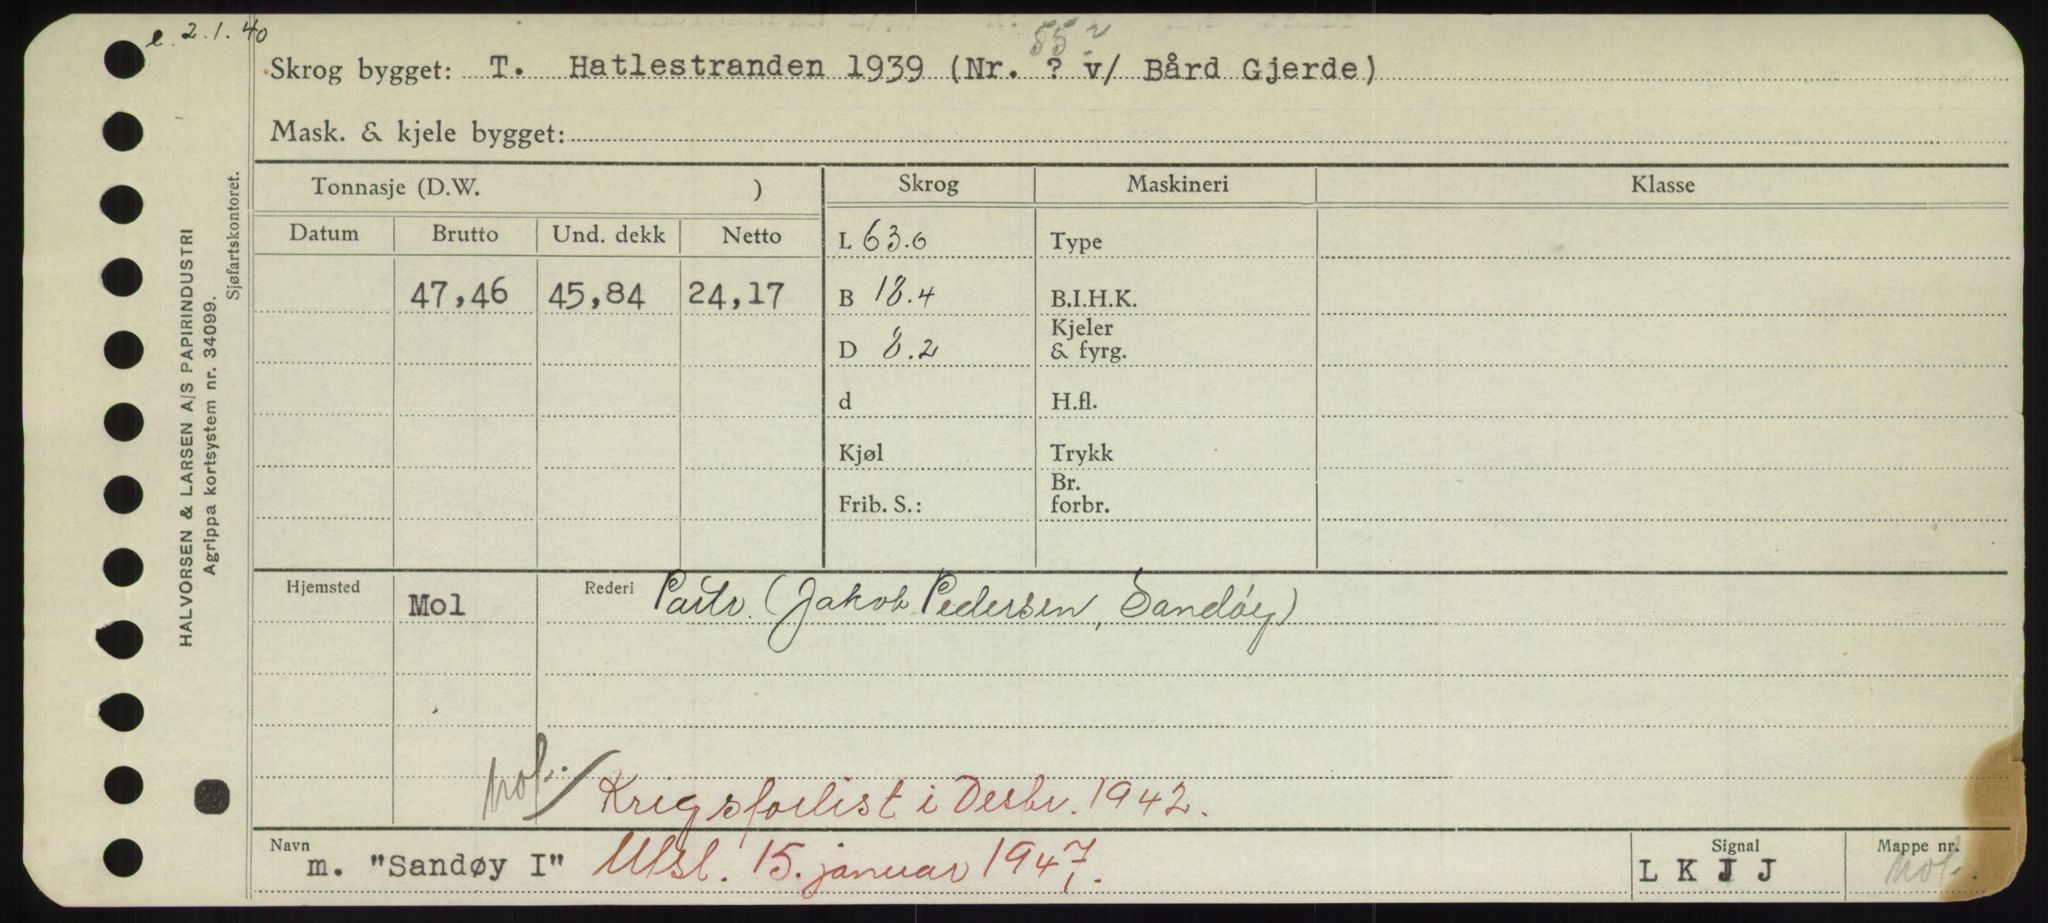 e. 2.1.40
55
Skrog bygget: T. Hatlestranden 1939 (Nr. ? v/ Bård Gjerde)
Mask. & kjele bygget:
Tonnasje (D.W. ) Skrog Maskineri Klasse
Datum Brutto Und. dekk Netto
L 63.0 Type
47,46 45,84 24,17 B 18.4 B.I.H.K.
D 8.2 Kjeler & fyrg.
d H.fl.
Kjøl Trykk
Frib. S.: Br. forbr.
Hjemsted Mol Rederi Partr. (Jakob Pedersen, Sandøy)
not. / Krigsforlist i Desbr. 1942.
Navn m. "Sandøy I" Utsl. 15. januar 1947. Signal L K J J Mappe nr. not.
HALVORSEN & LARSEN A/S PAPIRINDUSTRI
Agrippa kortsystem nr. 34099.
Sjøfartskontoret.